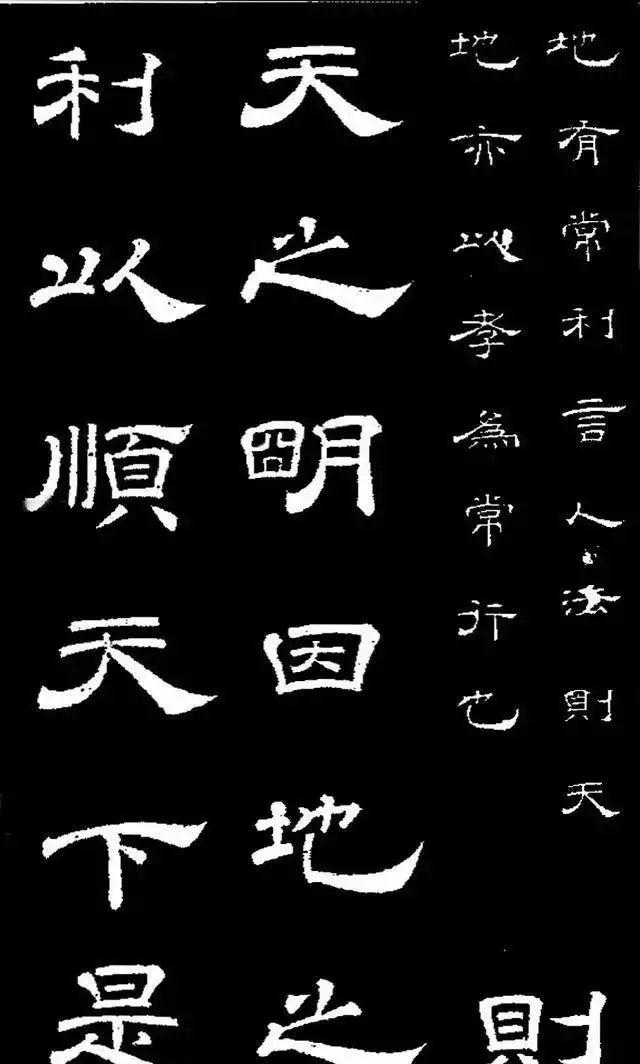 地有常利言人法則天
地亦以孝爲常行也
則
天之朙因地之
利以順天下是